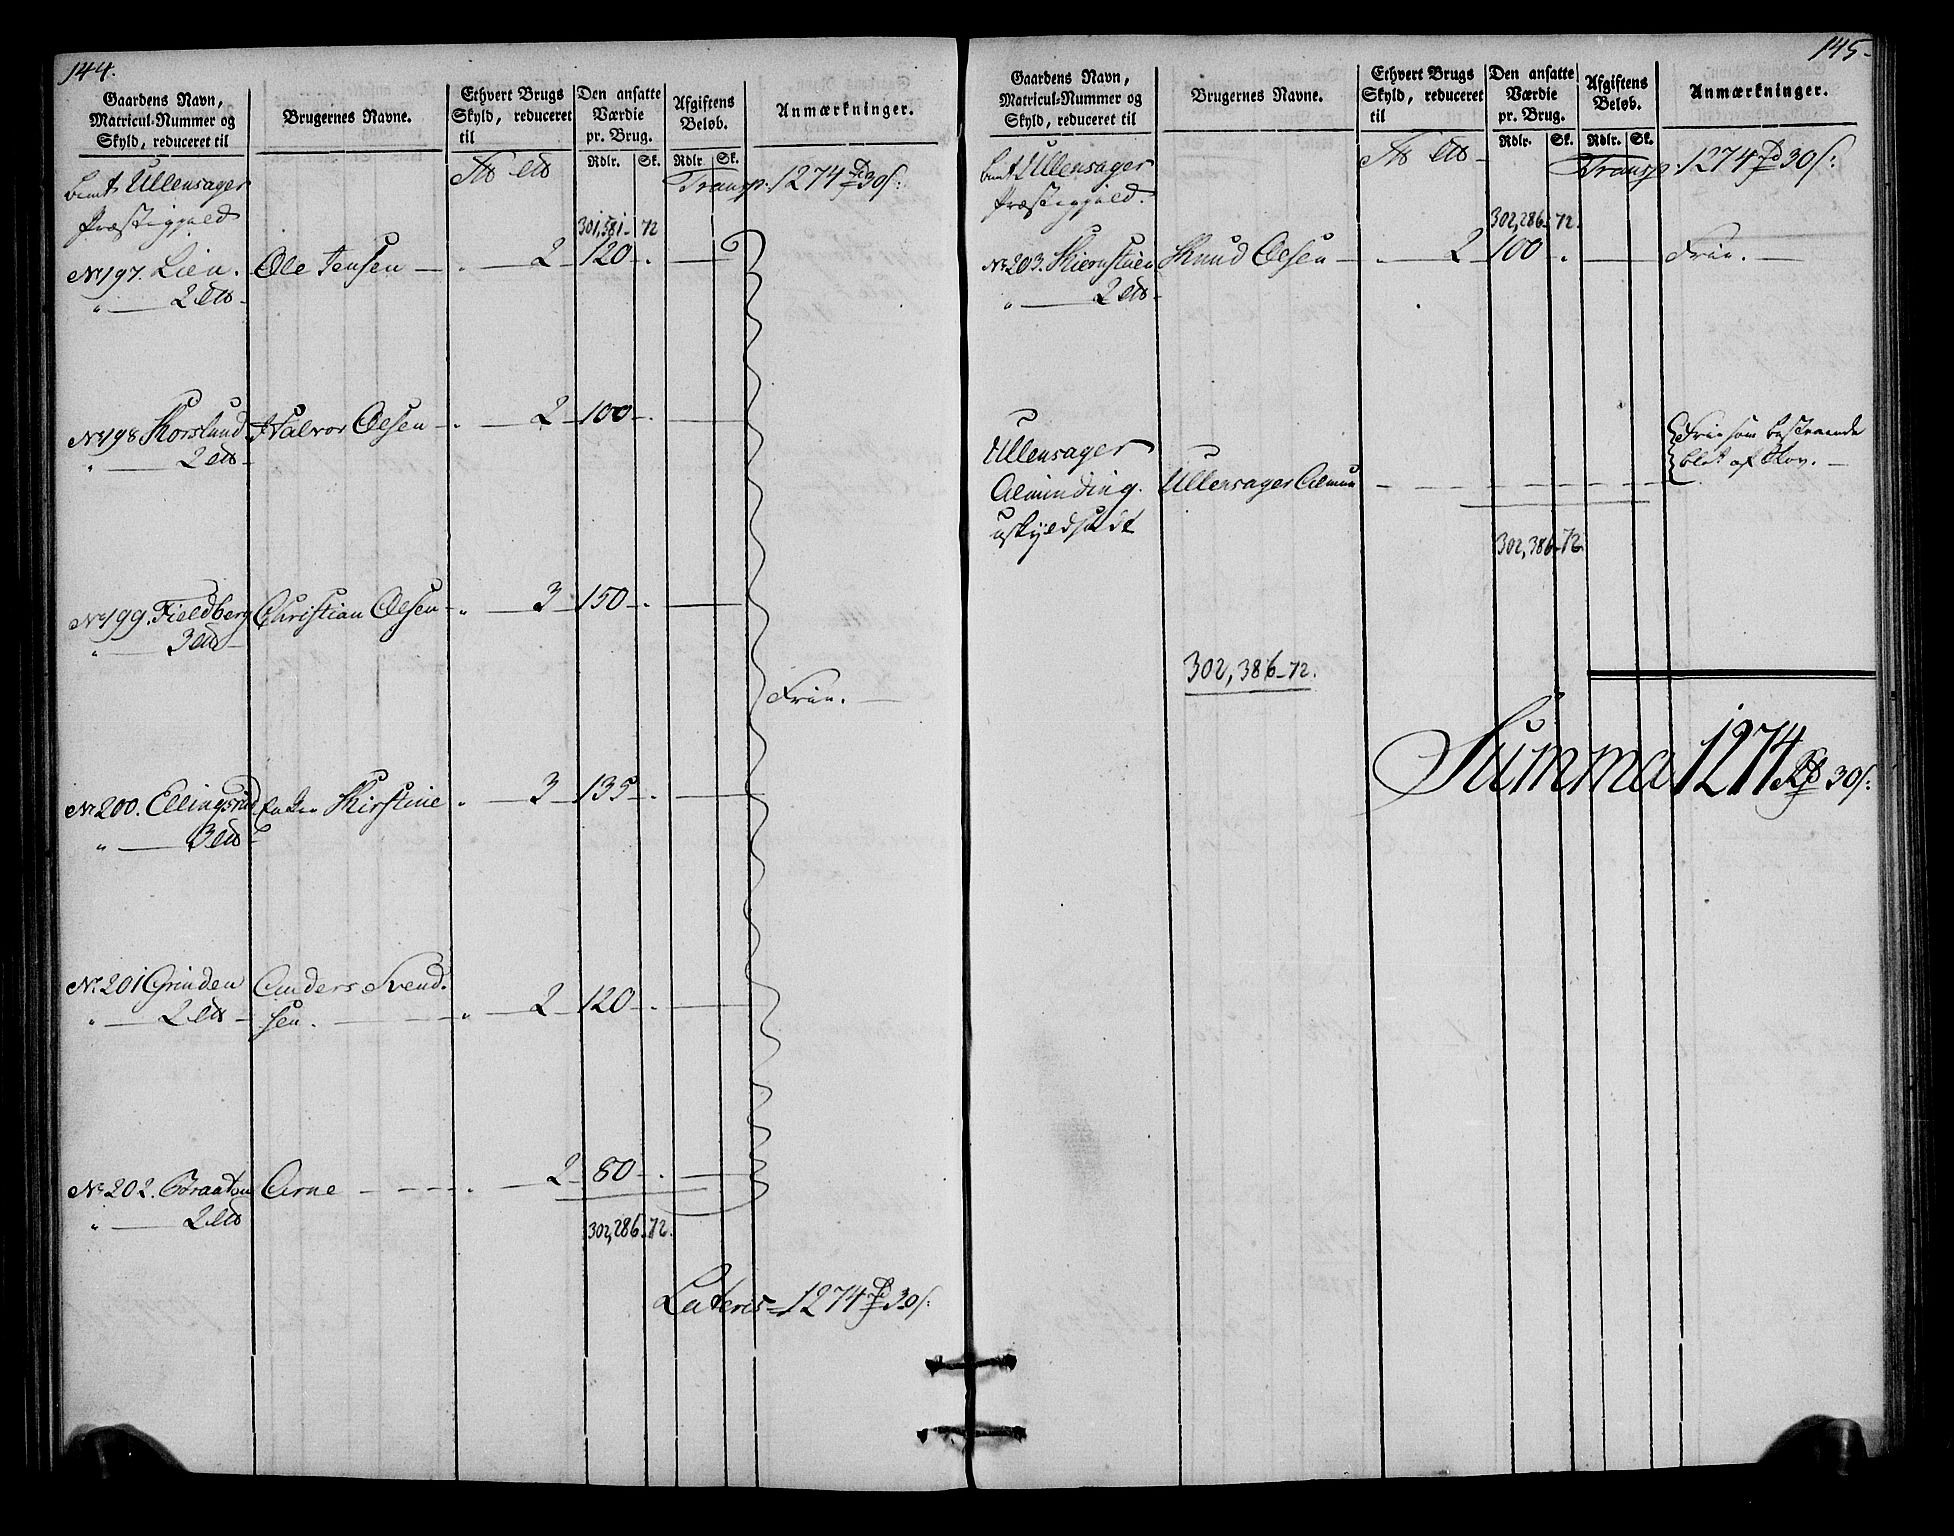 144.
Gaardens Navn,
Matricul-Nummer og
Skyld, reduceret til
Brugernes Navne.
Ethvert Brugs
Skyld, reduceret
til
Den ansatte
Værdie
pr. Brug.
Rdlr. Sk.
Afgiftens
Beløb.
Rdlr Sk.
Anmærkninger.
Ullensager
Præstegjeld
Transp: 1274 30
301,581-72
No 197. Lien. Ole Jensen - 2 120
" 2
No 198 Korslund Halvor Olsen - 2 100
" 2
No 199. Fieldberg Christian Olsen - " 3 150
" 3
Frie.
No 200. Ellingsrud Enken Kirstine " 3 135
" 3
No 201 Grinden Anders Svend-
" 2 sen. " 2 120
No 202. Braaton Arne 2 80
" 2
302,286-72.
Lateris 1274 30
145-
Gaardens Navn,
Matricul-Nummer og
Skyld, reduceret til
Brugernes Navne.
Ethvert Brugs
Skyld, reduceret
til
Den ansatte
Værdie
pr. Brug.
Rdlr. Sk.
Afgiftens
Beløb.
Rdlr. Sk.
Anmærkninger.
Ullensager
Præstegjeld.
Transp: 1274 30
302,286-72.
No 203. Knud Olsen 2 100 Frie.
" 2
Ullensager
Alminding.
uskyldsat
Ullensager Almin
Frie som bestaaende
blot af Skov.
302,386-72.
302,386-72.
Summa 1274 30